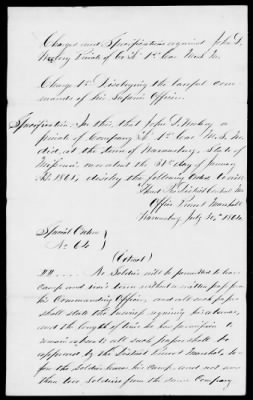 Charges and Specifications against John D.
Private of Co 1st Cav M.S.M.
Charge 1st Disobeying the lawful com
mands of his Superior Officer.
Specification In this, that John D. a
private of Company 1st Cav M.S.M.
did, at the town of Warrensburg, State of
Missouri, on or about the 31st day of January
1864, disobey the following order, to wit:
Head Qrs District Central Mo
Office Provost Marshal
Warrensburg July 30th 1864
Special Order
No 64
(Extract)
No Soldier will be permitted to leave
Camp and visit town without a written pass from
his Commanding Officer, and all such passes
shall state the business requiring his absence,
and the length of time he has permission to
remain all such passes shall be
approved by the District Provost Marshal, be
fore the soldier leaves his Camp, and not more
than two soldiers from the same Company